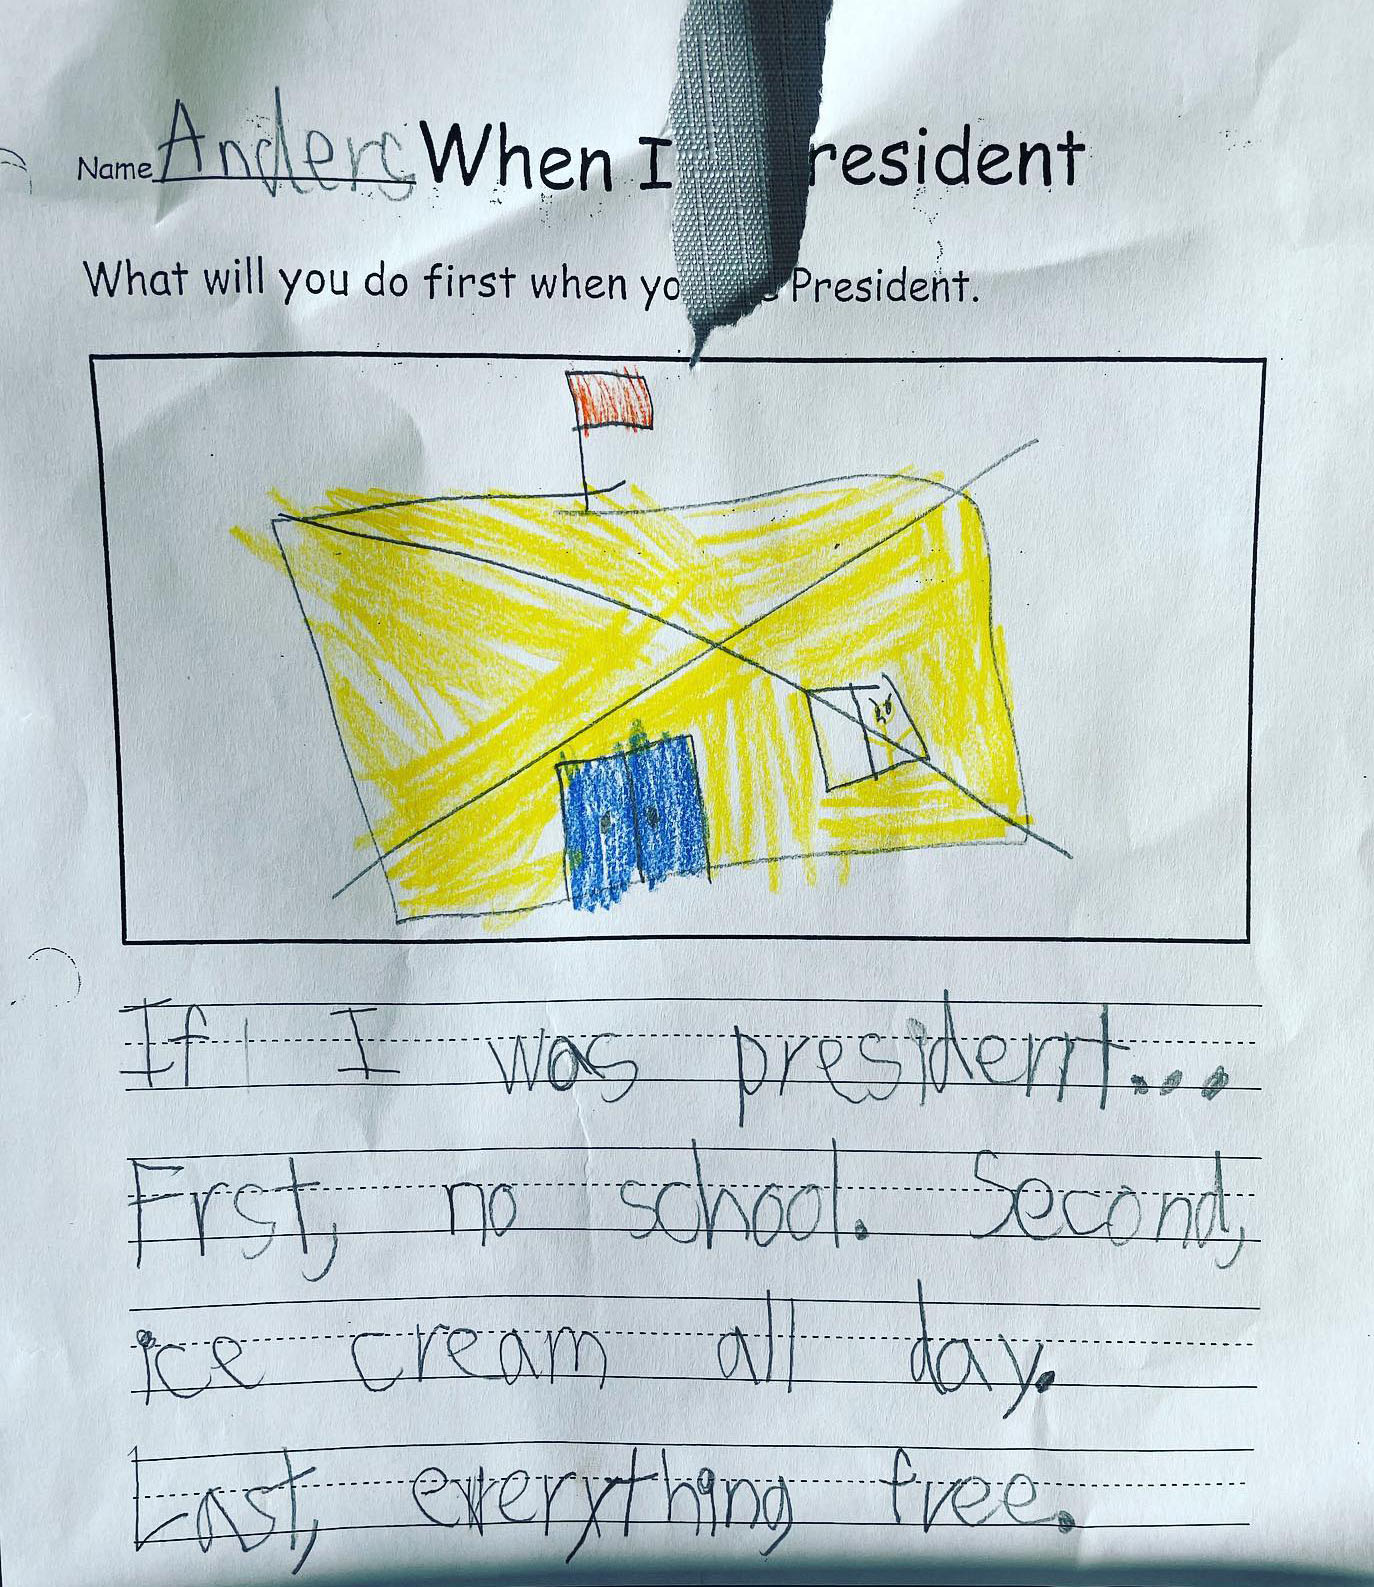 Name Anders When I resident
What will you do first when yo President.
If I was president...
Frst, no school. Second,
ice cream all day.
Last, everything free.